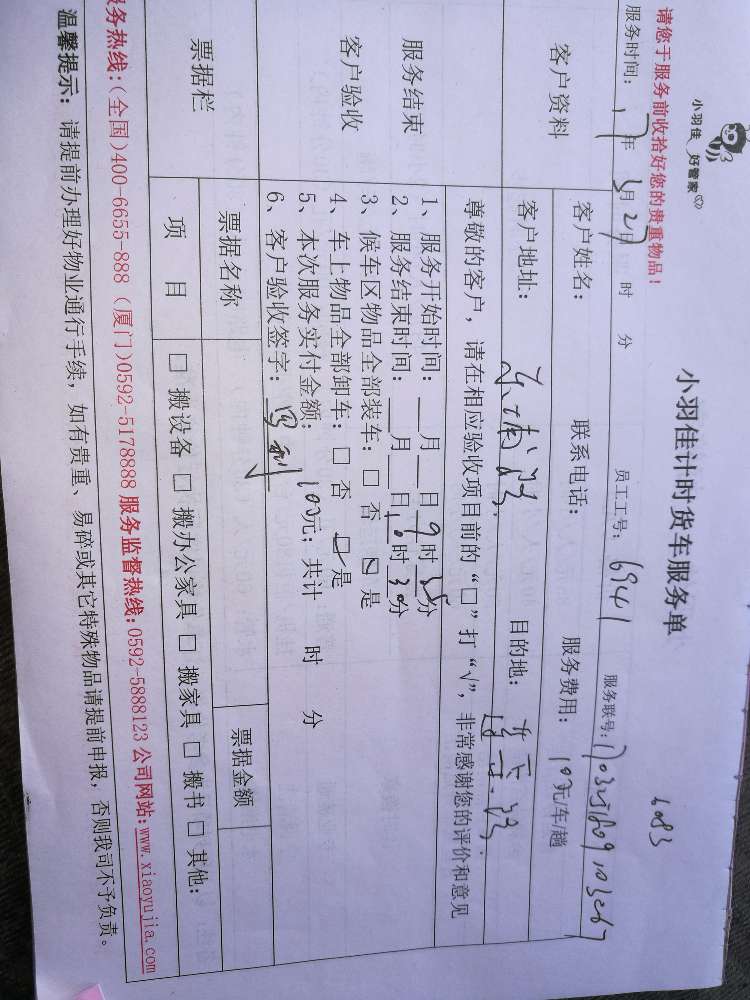 小羽佳 好管家
6083
小羽佳计时货车服务单
请您于服务前收拾好您的贵重物品！
服务时间： 17年 3月 27日 时 分 员工工号： 6941 服务联号：
客户资料 客户姓名： 联系电话： 服务费用： 100元/车/趟
客户地址： 目的地：
服务结束 客户验收
尊敬的客户，请在相应验收项目前的“□”打“√”，非常感谢您的评价和意见
1、服务开始时间： 月 日 9时 分
2、服务结束时间： 月 日 10时 30分
3、候车区物品全部装车：□ 否 ☑ 是
4、车上物品全部卸车：□ 否 ☑ 是
5、本次服务实付金额： 100元；共计 时 分
6、客户验收签字：
票据栏 票据名称 票据金额
项 目 □ 搬设备 □ 搬办公家具 □ 搬家具 □ 搬书 □ 其他：
服务热线：(全国)400-6655-888 (厦门)0592-5178888 服务监督热线:0592-5888123 公司网站:www.xiaoyujia.com
温馨提示：请提前办理好物业通行手续，如有贵重、易碎或其它特殊物品请提前申报，否则我司不予负责。